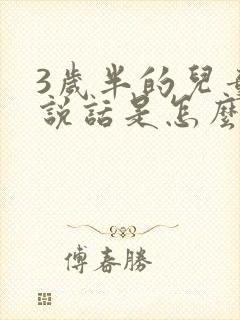 3歲半的兒
說話是怎麼
傅春勝